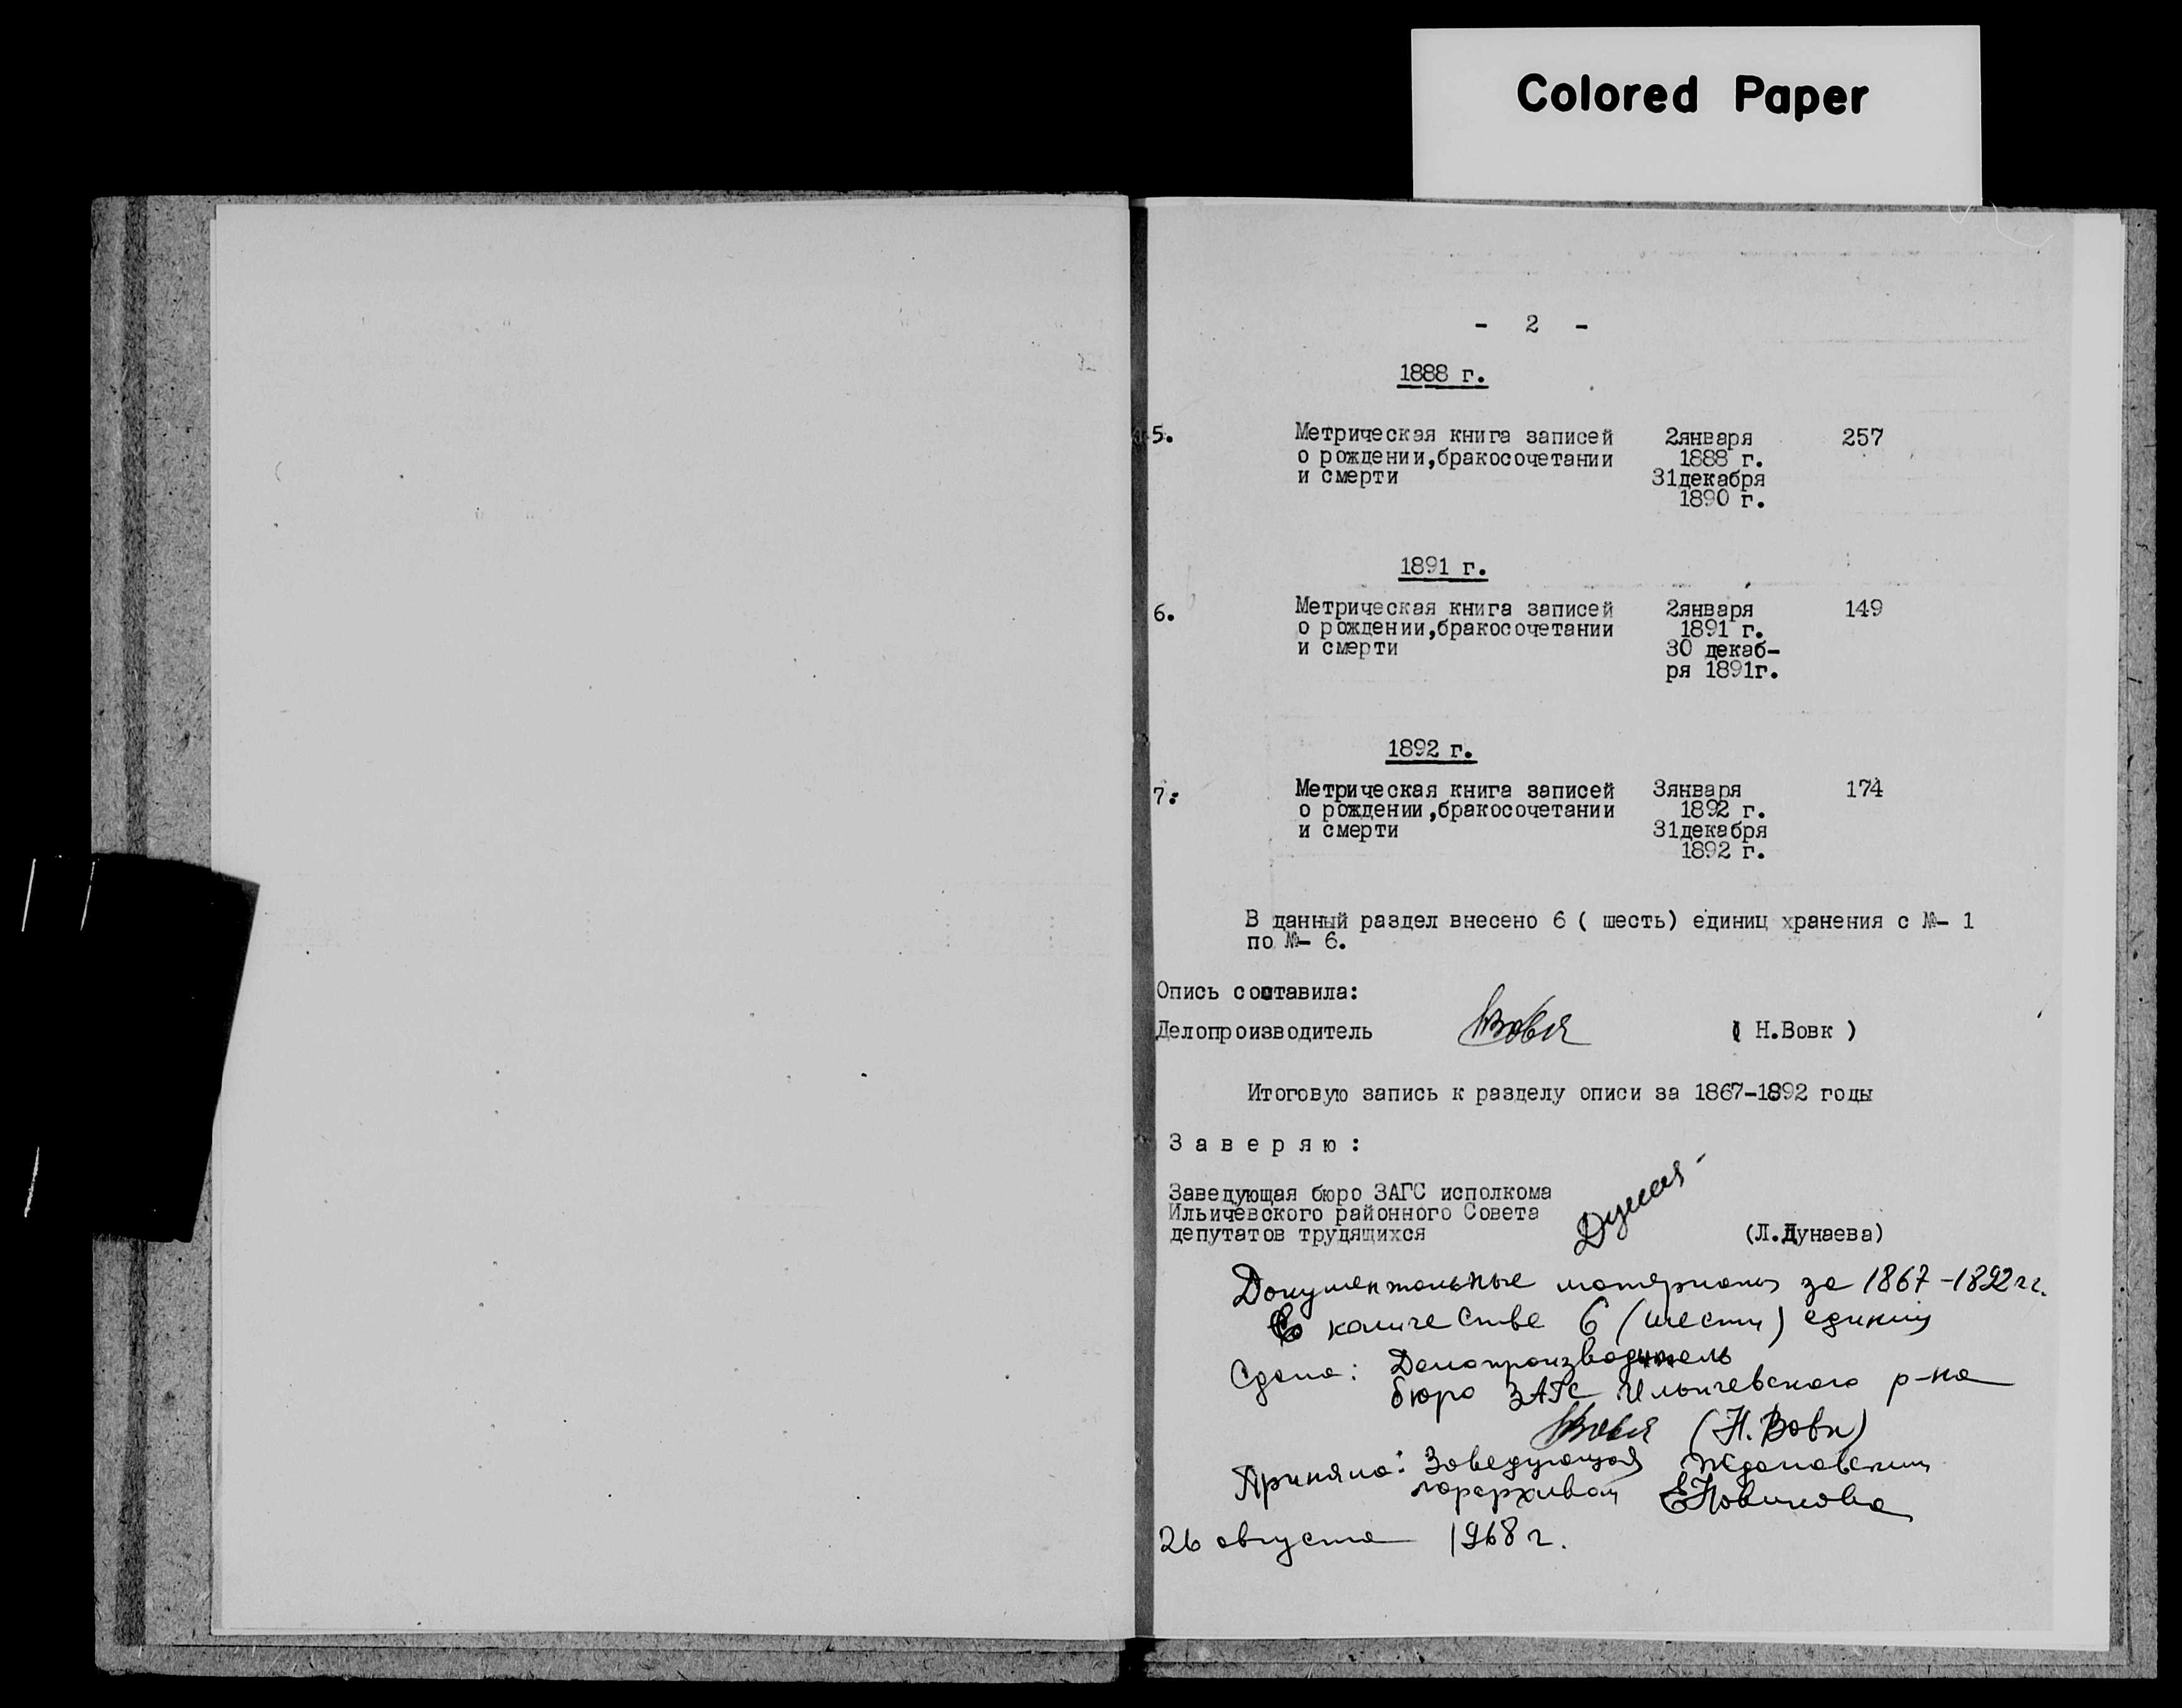 Colored Paper
- 2 -
1888 г.
5. Метрическая книга записей 2января 257
о рождении,бракосочетании 1888 г.
и смерти 31декабря
1890 г.
1891 г.
6. Метрическая книга записей 2января 149
о рождении,бракосочетании 1891 г.
и смерти 30 декаб-
ря 1891г.
1892 г.
7. Метрическая книга записей 3января 174
о рождении,бракосочетании 1892 г.
и смерти 31декабря
1892 г.
В данный раздел внесено 6 ( шесть) единиц хранения с №- 1
по №- 6.
Опись составила:
Делопроизводитель Вовк ( Н.Вовк )
Итоговую запись к разделу описи за 1867-1892 годы
З а в е р я ю :
Заведующая бюро ЗАГС исполкома
Ильичёвского районного Совета
депутатов трудящихся (Л.Дунаева)
Документальные материалы за 1867-1892 гг.
в количестве 6 (шести) единиц
Сдала: Делопроизводитель
бюро ЗАГС Ильичевского р-на
Вовк (Н. Вовк)
Приняла: Заведующая Ждановским
горархивом ЕНовикова
26 августа 1968 г.